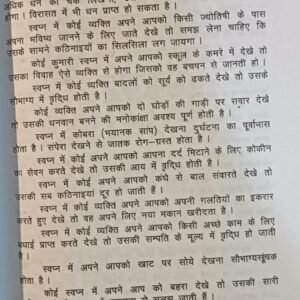 अधिक धन का
होगा। विरासत में भी धन प्राप्त हो सकता है।
स्वप्न में कोई व्यक्ति अपने आपको किसी ज्योतिषी के पास
अपना भविष्य जानने के लिए जाते देखे तो समझ लेना चाहिए कि
उसके सामने कठिनाइयों का सिलसिला लग जायगा।
कोई कुमारी स्वप्न में अपने आपको स्कूल के कमरे में देखे तो
उसका विवाह ऐसे व्यक्ति से होगा जिसको वह बचपन से जानती हो।
स्वप्न में कोई व्यक्ति बादलों को सूर्य को ढकते देखे तो उसके
सौभाग्य में वृद्धि होती है।
कोई व्यक्ति अपने आपको दो घोड़ों की गाड़ी पर सवार देखे
तो उसकी धनवान बनने की मनोकांक्षा अवश्य पूर्ण होती है।
स्वप्न में कोबरा (भयानक सांप) देखना दुर्घटना का पूर्वाभास
होता है। संपेरा देखने से जातक रोग-ग्रस्त होता है।
स्वप्न में कोई अपने आपको अपना दर्द मिटाने के लिए कोकीन
का सेवन करते देखे तो उसकी आय में वृद्धि होती है।
स्वप्न में कोई अपने आपको कंघे से बाल संवारते देखे तो
उसकी सब कठिनाइयां दूर हो जाती हैं।
स्वप्न में कोई व्यक्ति अपने आपको अपनी गलतियों का इकरार
करते हुए देखे तो वह अपने लिए नया मकान खरीदता है।
स्वप्न में कोई व्यक्ति अपने आपको किसी अच्छे काम के लिए
बधाई प्राप्त करते देखे तो उसकी सम्पति के मूल्य में वृद्धि हो जाती
है।
स्वप्न में अपने आपको खाट पर सोये देखना सौभाग्यसूचक
होता है।
कोई स्वप्न में अपने आप को बहरा देखे तो उसकी सारी
से सुलझ जाती हैं।